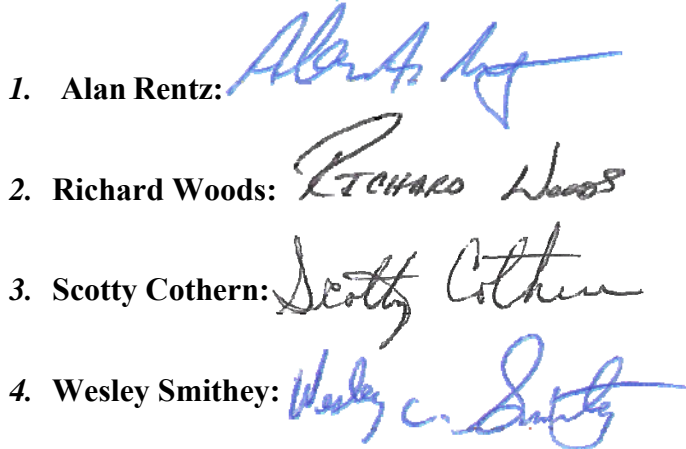 1. Alan Rentz: Alan A.
2. Richard Woods: RICHARD WOODS
3. Scotty Cothern: Scotty Cothern
4. Wesley Smithey: Wesley C. Smithey